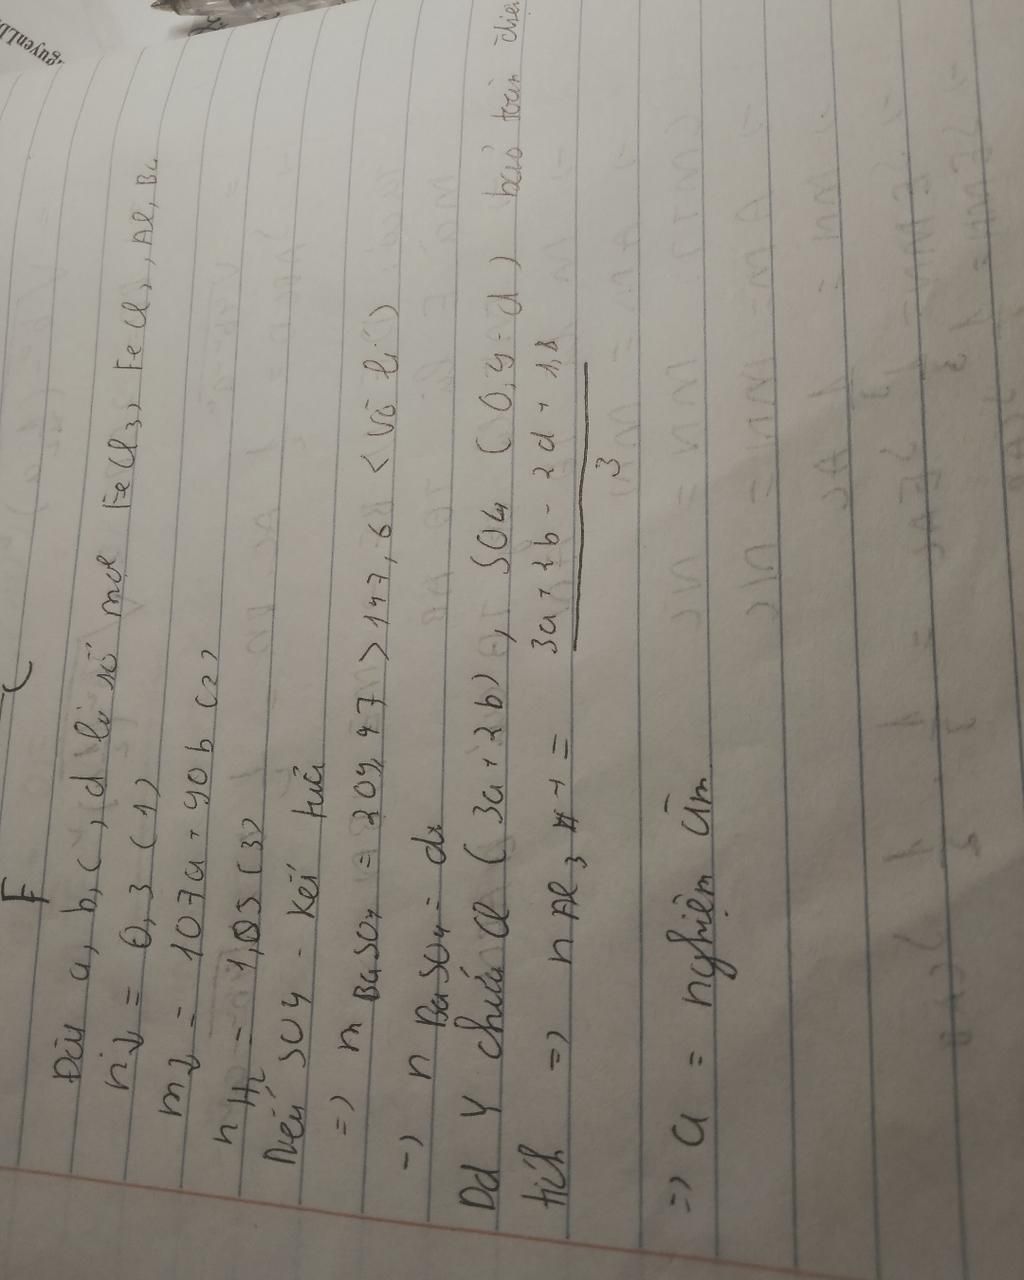 F
Đặt a, b, c, d là số mol FeCl3, FeCl2, Al, Ba
n↓ = 0,3 (1)
m↓ = 107a + 90b (2)
nH2 = 1,05 (3)
Nếu SO4 - kết tủa
=> m BaSO4 = 209,47 > 147,6 < (vô lí)
-> n BaSO4 = d
Dd Y chứa Cl (3a + 2b), SO4 (0,9 - d) bảo toàn điện
tích => n Al3+ = 3a + 2b - 2d + 1,8
3
=> a = nghiệm âm